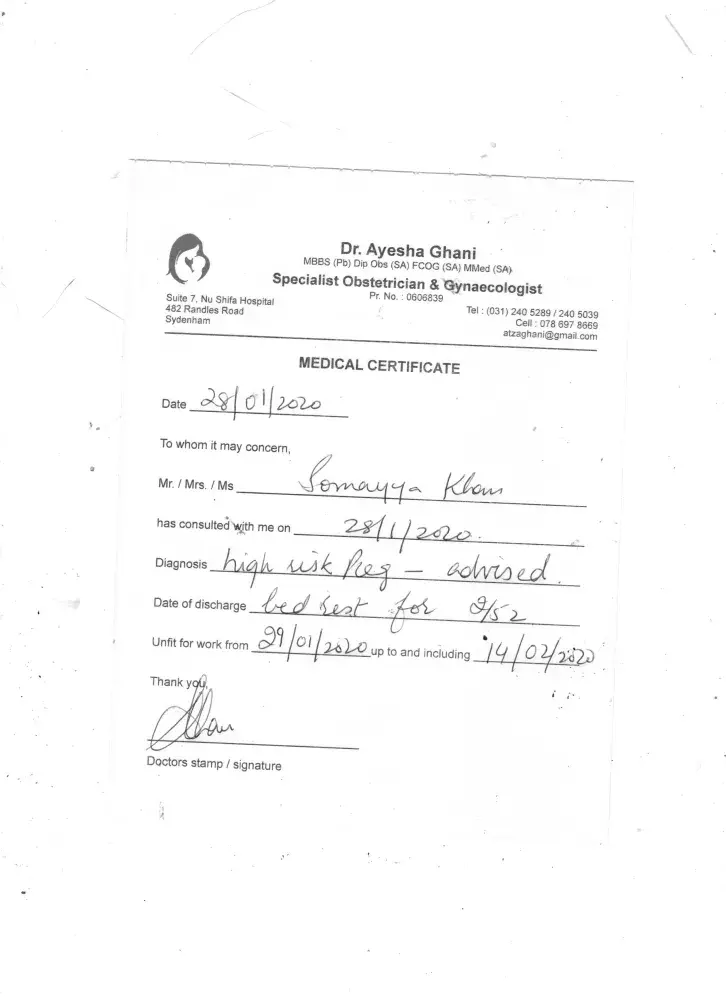 Dr. Ayesha Ghani
MBBS (Pb) Dip Obs (SA) FCOG (SA) MMed (SA)
Specialist Obstetrician & Gynaecologist
Pr. No. : 0606839
Suite 7, Nu Shifa Hospital
482 Randles Road
Sydenham
Tel : (031) 240 5289 / 240 5039
Cell : 078 697 8669
atzaghani@gmail.com
MEDICAL CERTIFICATE
Date 28/01/2020
To whom it may concern,
Mr. / Mrs. / Ms Somayya Khan
has consulted with me on 28/1/2020.
Diagnosis high risk Preg – advised
Date of discharge bed rest for 2/52
Unfit for work from 29/01/2020 up to and including 14/02/2020
Thank you,
Doctors stamp / signature